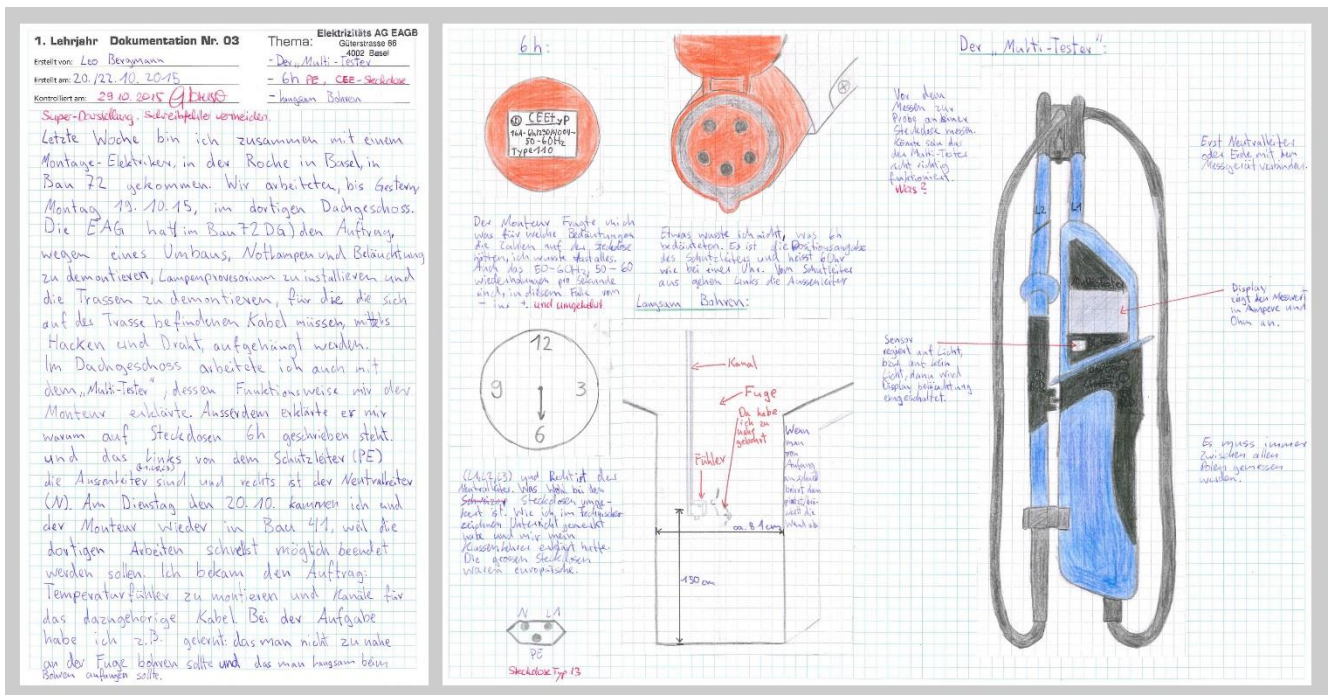 1. Lehrjahr Dokumentation Nr. 03
Thema:
Elektrizitäts AG EAGB
Güterstrasse 86
4002 Basel
Erstellt von: Leo Bergmann
- Der „Multi-Tester
Erstellt am: 20./22.10.2015
- 6h PE, CEE-Steckdose
Kontrolliert am: 29.10.2015
- langsam Bohren
Super-Darstellung. Schreibfehler vermeiden.
Letzte Woche bin ich zusammen mit einem
Montage-Elektriker, in der Roche in Basel, in
Bau 72 gekommen. Wir arbeiteten, bis Gestern,
Montag 19.10.15, im dortigen Dachgeschoss.
Die EAG hat (im Bau 72 DG) den Auftrag,
wegen eines Umbaus, Notlampen und Beläuchtung
zu demontieren, Lampenprovesorium zu installieren und
die Trassen zu demontieren, für die die sich
auf des Trasse befindenen Kabel müssen, mittels
Hacken und Draht, aufgehängt werden.
Im Dachgeschoss arbeitete ich auch mit
dem „Multi-Tester", dessen Funktionsweise mir der
Monteur erklärte. Ausserdem erklärte er mir
warum auf Steckdosen 6h geschrieben steht.
und das Links von dem Schutzleiter (PE)
(L1, L2, L3)
die Aussenleiter sind und rechts ist der Neutralleiter
(N). Am Dienstag den 20.10. kammen ich und
der Monteur wieder in Bau 41, weil die
dortigen Arbeiten schnelst möglich beendet
werden sollen. Ich bekam den Auftrag:
Temperaturfühler zu montieren und Kanäle für
das dazugehörige Kabel. Bei der Aufgabe
habe ich z.B. gelernt: das man nicht zu nahe
an der Fuge bohren sollte und das man langsam beim
Bohren anfangen sollte.
6h:
CEEtyp
50-60Hz
Type 110
Der Monteur Fragte mich
was für welche Bedäutungen
die Zahlen auf der Steckdose
hätten, ich wusste fast alles.
Auch das 50-60Hz, 50-60
wiederholungen pro Sekunde
sind, in diesem Falle vom
- ins +. und umgekehrt
Etwas wusste ich nicht, was 6h
bedäuteten. Es ist die Positionsangabe
des Schutzleiters und heisst 6 Uhr
wie bei einer Uhr. Vom Schutzleiter
aus gehen Links die Aussenleiter
12
3
6
9
(L1, L2, L3) und Recht ist der
Neutralleiter. Was Wohl bei den
Steckdosen umge-
keert ist. Wie ich im Technischer
zeichnen Unterricht gemerkt
habe und mir mein
Klassenlehrer erklärt hatte.
Die grossen Steckdosen
waren europäische.
N L1
PE
Steckdose Typ 13
Langsam Bohren:
Kanal
Fuge
Da habe
ich zu
nahe
gebohrt
Fühler
Wenn
man
von
Anfang
an
die
Wand ab
ca. 8.1 cm
150 cm
Der „Multi-Tester":
Vor dem
Messen zur
Probe an einer
Steckdose messen.
Könnte sein das
der Multi-Tester
nicht richtig
funktioniert.
Was?
Erst Neutralleiter
oder Erde mit dem
Messgerät verbinden.
L2
L1
Display
zeigt den Messwert
in Ampere und
Ohm an.
Sensor
regiert auf Licht,
bzw. auf kein
Licht, dann wird
Display beläuchtung
eingeschaltet.
Es muss immer
zwischen allen
Polen gemessen
werden.